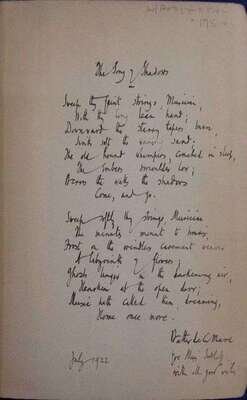 The Song of Shadows
Sweep thy faint strings, Musician,
With thy long lean hand;
Downward the starry tapers burn,
Sinks soft the waning sand;
The old hound whimpers, couched in sleep,
The embers smoulder low;
Across the walls the shadows
Come, and go.
Sweep softly thy strings, Musician
The minutes mount to hours
Frost on the windless casement weaves
A labyrinth of flowers;
Ghosts linger in the darkening air,
Hearken at the open door;
Music hath called them dreaming,
Home once more.
Walter de la Mare
for Miss
July 1922
with all good wishes